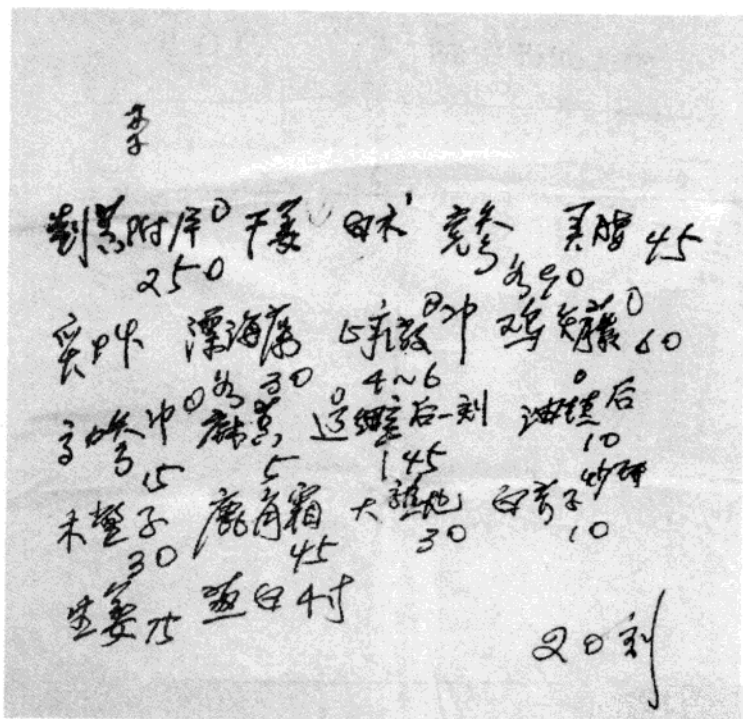 李
制黄附片 干姜 白术 党参 灵脂 45
250 各90
炙草 漂海藻 冲 鸡矢藤 60
各 30 4~6
高丽参冲 麻黄 辽细辛后一刻 油桂后
15 5 145 10
木鳖子 鹿角霜 大熟地 白芥子炒研
30 45 30 10
生姜 75 葱白4寸
20剂